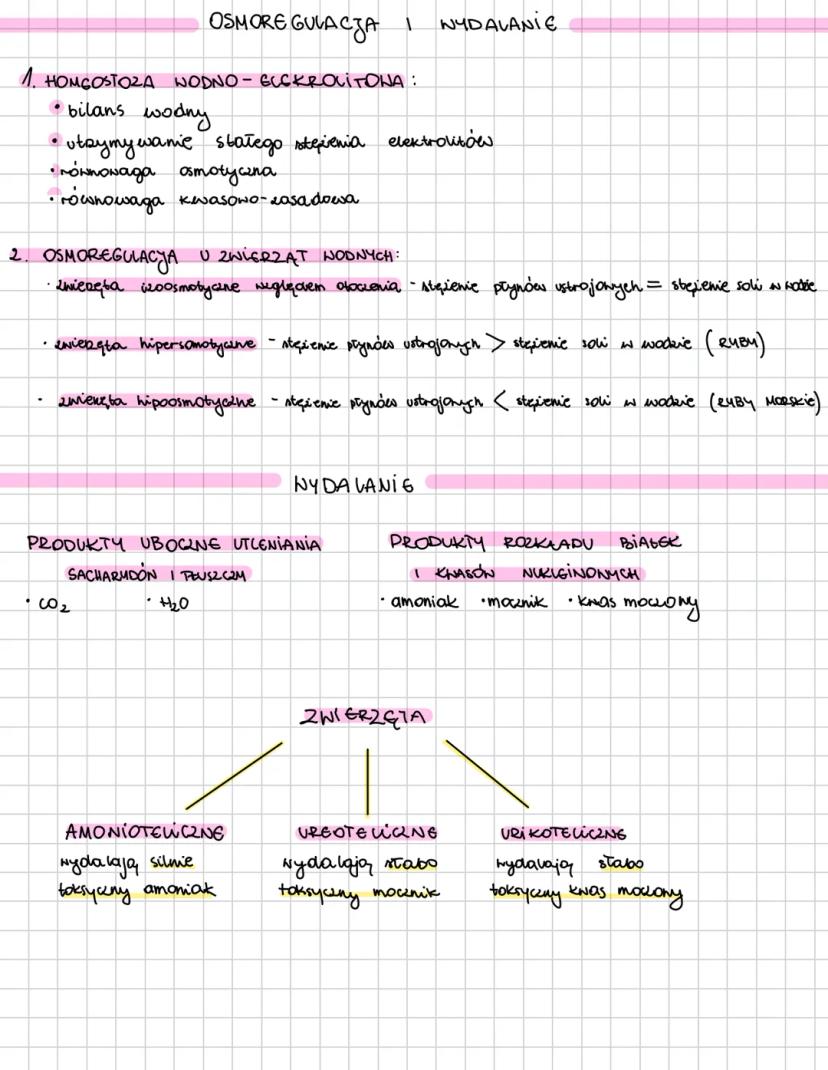 OSMOREGULACJA I WYDALANIE
1. HOMEOSTOZA WODNO-ELEKROLITOWA:
• bilans wodny
• utrzymywanie stałego stężenia elektrolitów
• równowaga osmotyczna
• równowaga kwasowo-zasadowa
2. OSMOREGULACJA U ZWIERZĄT WODNYCH:
• zwierzęta izoosmotyczne względem otoczenia - stężenie płynów ustrojowych = stężenie soli w wodzie
• zwierzęta hipersomotyczne - stężenie płynów ustrojowych > stężenie soli w wodzie (RYBY)
• zwierzęta hipoosmotyczne - stężenie płynów ustrojowych < stężenie soli w wodzie (RYBY MORSKIE)
WYDALANIE
PRODUKTY UBOCZNE UTLENIANIA
SACHARYDÓW I TŁUSZCZY
• CO2 • H2O
PRODUKTY ROZKŁADU BIAŁEK
I KWASÓW NUKLEINOWYCH
• amoniak • mocznik • kwas moczowy
ZWIERZĘTA
AMONIOTELICZNE
wydalają silnie
toksyczny amoniak
UREOTELICZNE
wydalają słabo
toksyczny mocznik
URIKOTELICZNE
wydalają słabo
toksyczny kwas moczowy